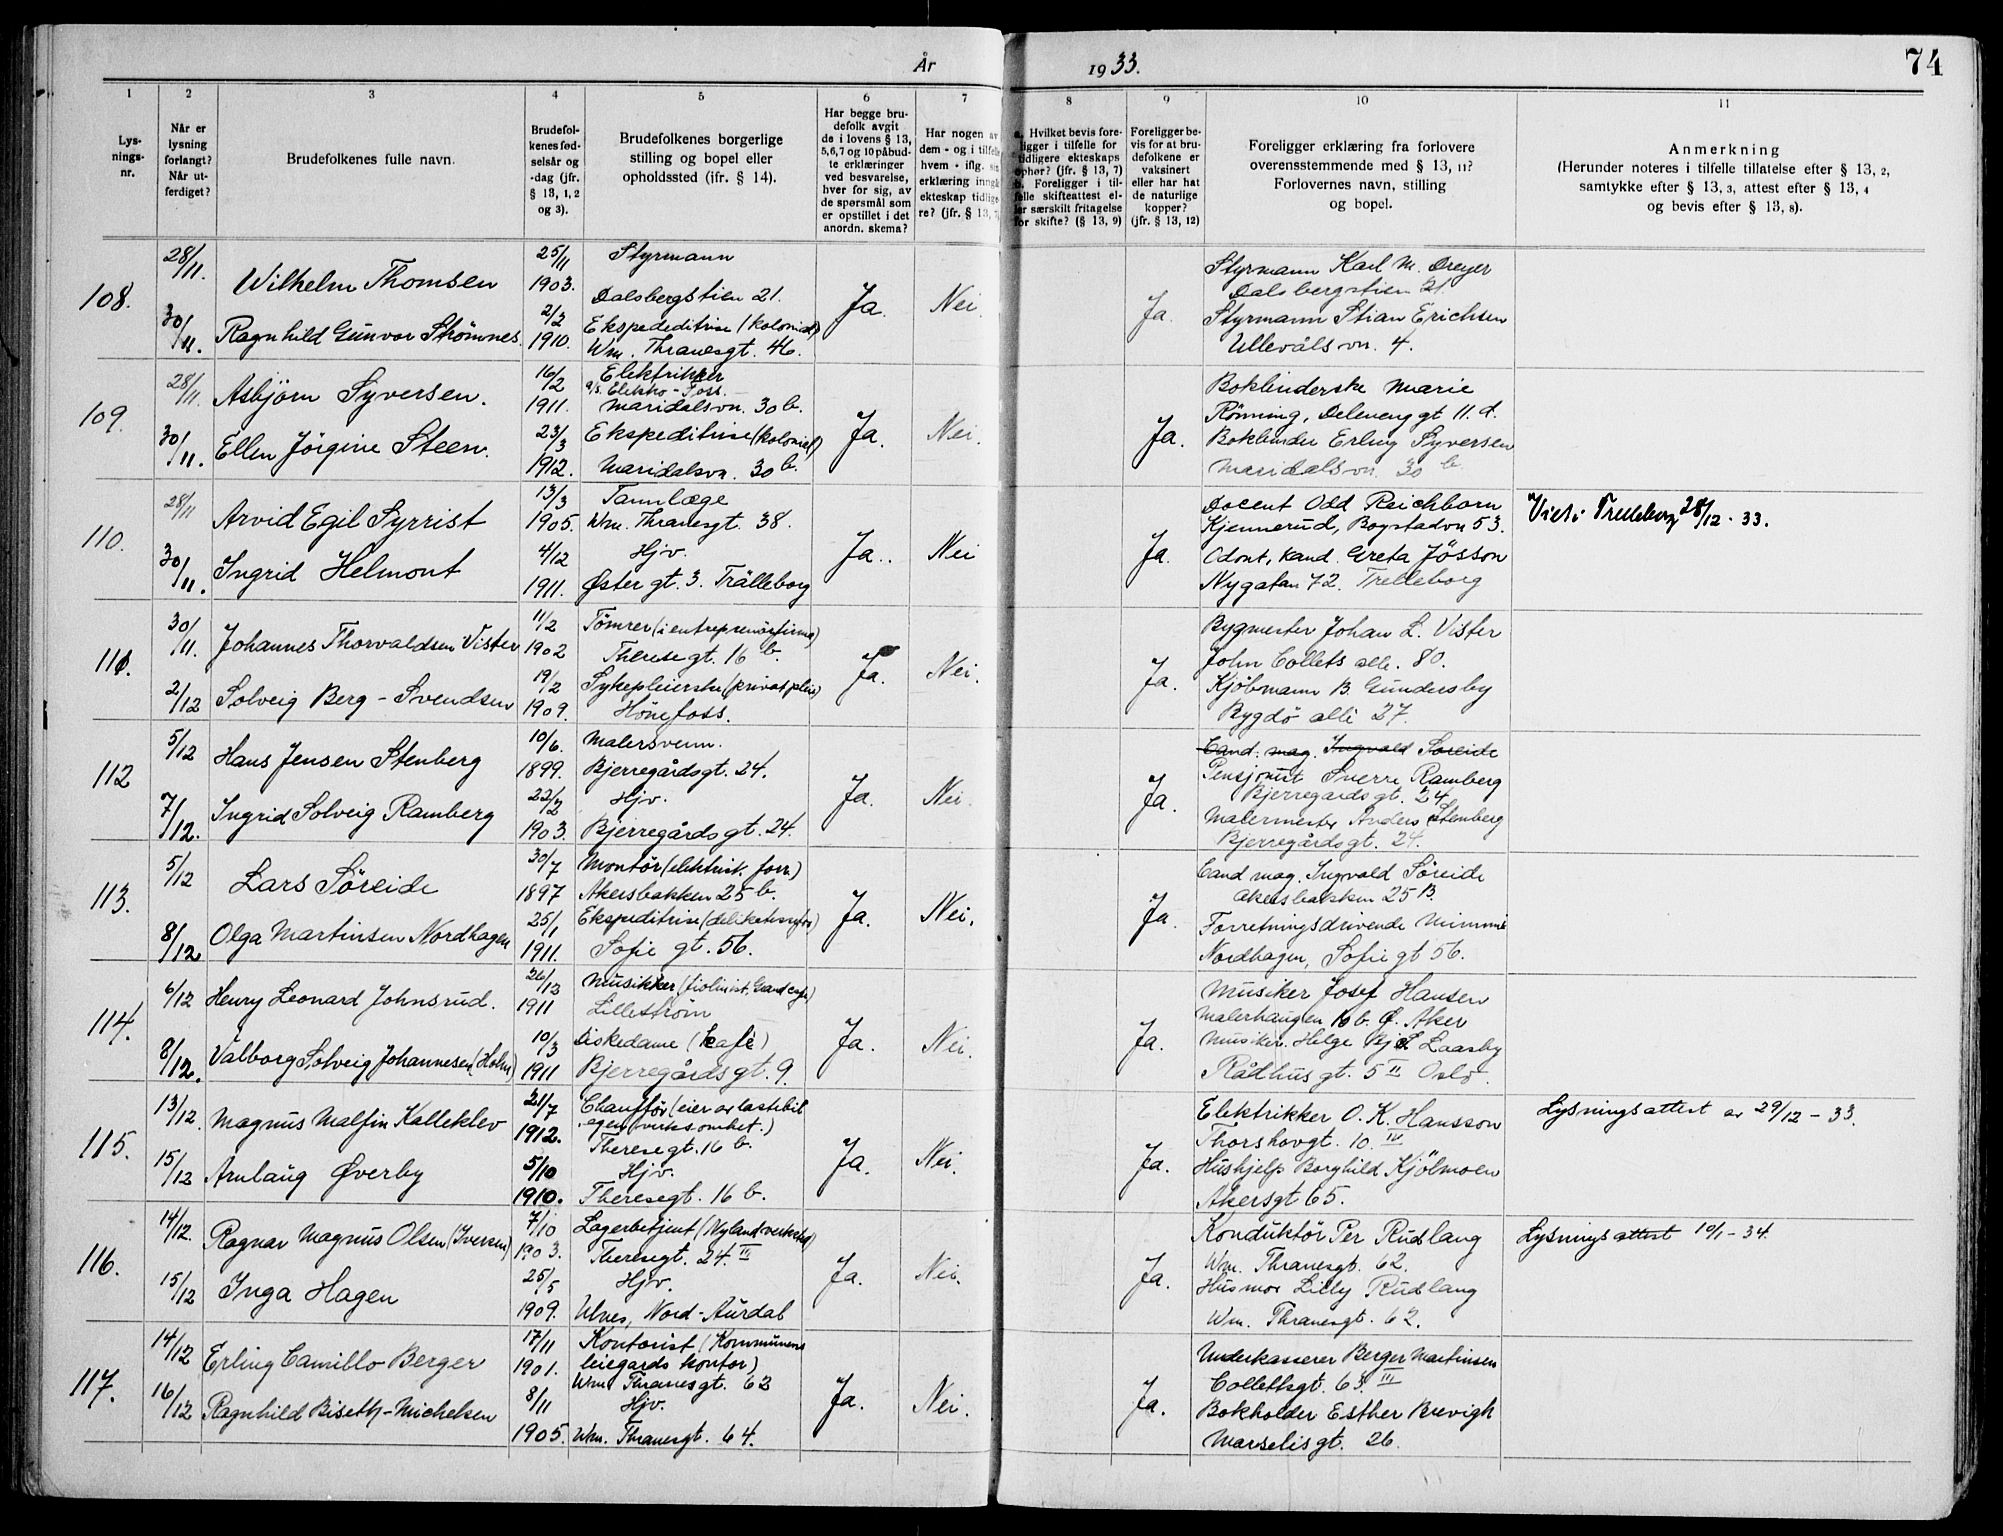 År 1933.
74
1 2 3 4 5 6 7 8 9 10 11
Lysnings-nr.
Når er lysning forlangt? Når utferdiget?
Brudefolkenes fulle navn.
Brudefolkenes fødselsår og -dag (jfr. § 13, 1, 2 og 3).
Brudefolkenes borgerlige stilling og bopel eller opholdssted (ifr. § 14).
Har begge brudefolk avgit de i lovens § 13, 5,6,7 og 10 påbudte erklæringer ved besvarelse, hver for sig, av de spørsmål som er opstillet i det anordn. skema?
Har nogen av dem - og i tilfelle hvem - iflg. sin erklæring inngå ekteskap tidligere? (jfr. § 13, 7)
a. Hvilket bevis foreligger i tilfelle for tidligere ekteskaps ophør? (jfr. § 13, 7) b. Foreligger i tilfelle skifteattest eller særskilt fritagelse for skifte? (§ 13, 9)
Foreligger bevis for at brudefolkene er vaksinert eller har hat de naturlige kopper? (jfr. § 13, 12)
Foreligger erklæring fra forlovere overensstemmende med § 13, 11? Forlovernes navn, stilling og bopel.
Anmerkning (Herunder noteres i tilfelle tillatelse efter § 13, 2, samtykke efter § 13, 3, attest efter § 13, 4 og bevis efter § 13, 8).
108.
28/11.
30/11.
Wilhelm Thomsen
Ragnhild Gunvor Strømnes.
25/11 1903.
2/2 1910.
Styrmann
Dalsbergstien 21.
Ekspededitrise (kolonial)
Wm. Thranesgt. 46.
Ja.
Nei
Ja.
Styrmann Karl M. Dreyer
Dalsbergstien 21.
Styrmann Stian Erichsen
Ullevålsvn. 4.
109.
28/11.
30/11.
Asbjørn Syversen.
Ellen Jörgine Steen.
16/2 1911.
23/3 1912.
Elektrikker
a/s. Elektro-Foss.
Maridalsvn. 30 b.
Ekspeditrise (kolonial)
Maridalsvn. 30 b.
Ja.
Nei.
Ja.
Bokbinderske Marie
Rönning, Delenenggt 11. d.
Bokbinder Erling Syversen
Maridalsvn. 30 b.
110.
28/11
30/11.
Arvid Egil Syrrist
Ingrid Helmont
13/3 1905.
4/12 1911.
Tannlæge
Wm. Thranesgt. 38.
Hjv.
Øster gt. 3. Trälleborg
Ja..
Nei
Ja.
Docent Odd Reichborn
Kjennerud, Bogstadvn 53.
Odont. kand. Greta Jösson
Nygatan 72. Trelleborg
Viet i Trelleborg 28/12 - 33.
111.
30/11.
2/12
Johannes Thorvaldsen Vister
Solveig Berg-Svendsen
11/2 1902
19/2 1909.
Tömrer (i entreprenörfirma)
Therese gt. 16 b.
Sykepleierske (privat pleie)
Hönefoss.
Ja.
Nei.
Ja.
Bygmester Johan L. Vister
John Collets alle. 80.
Kjöbmann B. Gundersby
Bygdö alle 27.
112
5/12
7/12.
Hans Jensen Stenberg
Ingrid Solveig Ramberg
10/6. 1899.
22/2 1903.
Malersvenn.
Bjerregårdsgt. 24.
Hjv.
Bjerregårdsgt. 24.
Ja.
Nei.
Ja.
Cand. mag. Ingvald Søreide
Pensjonist Sverre Ramberg
Bjerregårdsgt. 24
Malermester Anders Stenberg
Bjerregårdsgt. 24.
113.
5/12
8/12
Lars Söreide
Olga Martinsen Nordhagen
30/7 1897
25/1 1911.
Montör (elektrisk. forr.)
Akersbakken 25 b.
Ekspeditrise (delikatessefor)
Sofie gt. 56.
Ja.
Nei.
Ja.
Cand mag. Ingvald Söreide
Akersbakken 25 B.
Forretningsdrivende Mimmi
Nordhagen, Sofie gt 56.
114.
6/12
8/12.
Henry Leonard Johnsrud.
Valborg Solveig Johannesen (Holm)
26/12 1911
10/3 1911
Musikker (fiolinist, Grand café)
Lilleström
Diskedame (kafé)
Bjerregårdsgt. 9.
Ja.
Nei.
Ja.
Musiker Josef Hansen
Malerhaugen 16 b. Ø. Aker
Musiker. Helge Laasby
Rådhusgt. 5 II Oslo.
115.
13/12.
15/12
Magnus Malfin Kalleklev
Arnlaug Øverby
21/7 1912.
5/10 1910.
Chauffør (eier av lastebil
egen virksomhet.)
Theresegt. 16 b.
Hjv.
Theresegt. 16 b.
Ja.
Nei.
Ja.
Elektrikker O. K. Hansson
Thorshovgt. 10. IV
Hushjelp Borghild Kjölmoen
Akersgt 65.
Lysningsattest av 29/12 - 33.
116.
14/12.
15/12
Ragnar Magnus Olsen (Iversen)
Inga Hagen
7/10 1903.
25/5 1909.
Lagerbetjent (Nylandsverksted)
Theresegt. 24. III
Hjv.
Ulnes, Nord-Aurdal
Ja.
Nei.
Ja.
Konduktör Per Rudlang
Wm. Thranesgt. 62.
Husmor Lilly Rudlang
Wm. Thranesgt. 62.
Lysningsattest 10/1 - 34.
117.
14/12
16/12
Erling Camillo Berger
Ragnhild Biseth-Michelsen
17/11 1901.
8/11 1905.
Kontorist (Kommunens
leiegårds kontor)
Wm Thranesgt. 62
Hjv.
Wm. Thranesgt. 64.
Ja.
Nei.
Ja.
Underkasserer Berger Martinsen
Collettsgt. 63. III
Bokholder Esther Brevigh
Marselisgt. 26.